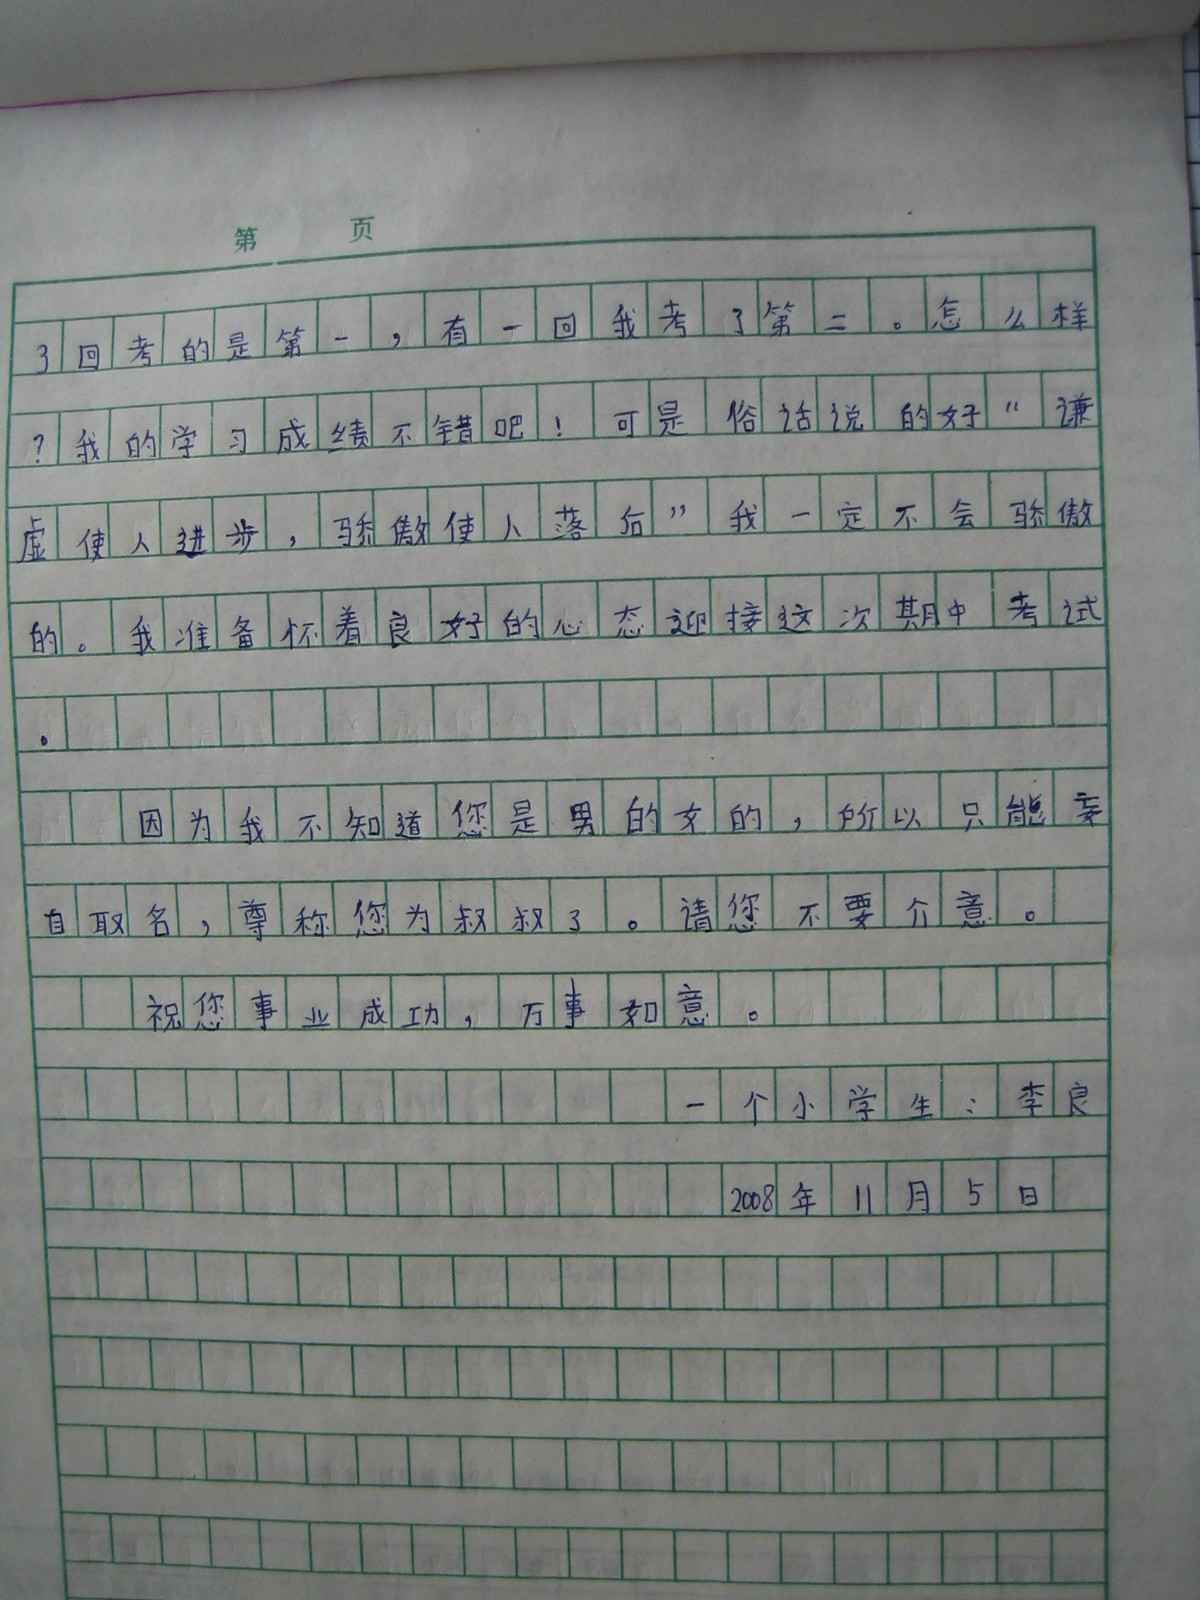 第 页
了回考的是第一，有一回我考了第二。怎么样
？我的学习成绩不错吧！可是俗话说的好“谦
虚使人进步，骄傲使人落后”我一定不会骄傲
的。我准备怀着良好的心态迎接这次期中考试
。
因为我不知道您是男的女的，所以只能妄
自取名，尊称您为叔叔了。请您不要介意。
祝您事业成功，万事如意。
一个小学生：李良
2008年11月5日